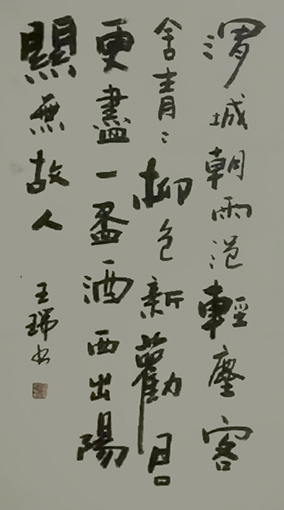 渭城朝雨浥輕塵客
舍青〻柳色新勸君
更盡一盃酒西出陽
關無故人
王瑞书